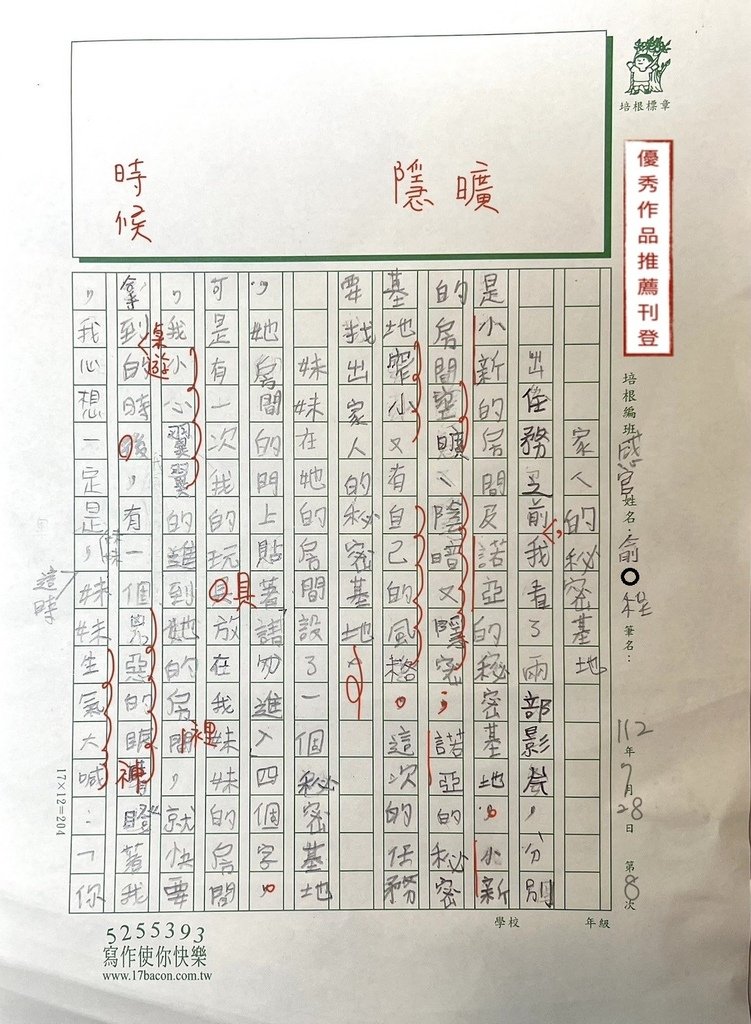 培根標章
優秀作品推薦刊登
培根編班
姓名：俞○程
筆名：
112年7月28日
第8次
曠
隱
時候
家人的秘密基地
出任務之前，我看了兩部影片，分別
是小新的房間及諾亞的秘密基地。小新
的房間空曠、陰暗又隱密；諾亞的秘密
基地窄小又有自己的風格。這次的任務
要找出家人的秘密基地。
妹妹在她的房間設了一個秘密基地
，她房間的門上貼著請勿進入四個字。
可是有一次我的玩具放在我妹妹的房間
具
，我小心翼翼的進到她的房間，就快要
裡
桌遊
拿到的時後，有一個兇惡的眼睛瞪著我
，我心想一定是，妹妹生氣大喊：「你
妹妹
這時
17×12=204
學校
年級
5255393
寫作使你快樂
www.17bacon.com.tw